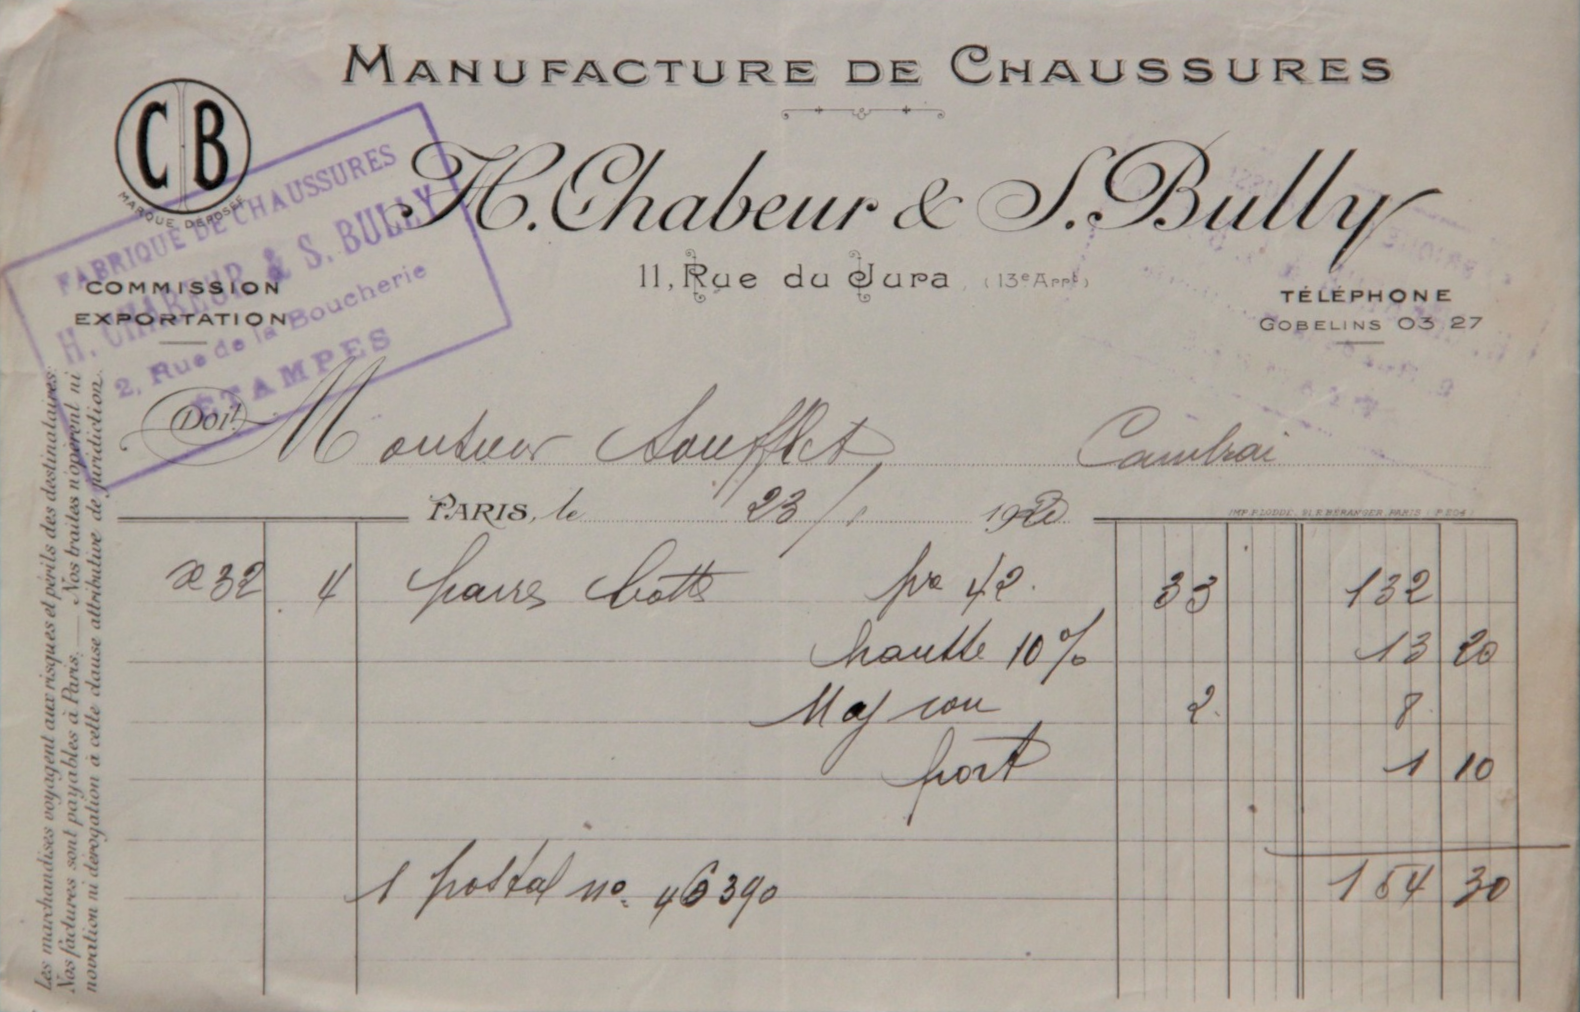 MANUFACTURE DE CHAUSSURES
CB
MARQUE DÉPOSÉE
H. Chabeur & S. Bully
11, Rue du Jura (13e Arrt)
FABRIQUE DE CHAUSSURES
H. CHABEUR & S. BULLY
2, Rue de la Boucherie
ÉTAMPES
COMMISSION
EXPORTATION
TÉLÉPHONE
GOBELINS 03 27
Doit Monsieur Soufflet, Cambrai
PARIS, le 23/1 1920
IMP. P. LODDÉ, 91, R. BÉRANGER, PARIS
32 4 paires botts 42. 33 132
hausse 10% 13 20
Maj 2. 8
port 1 10
154 30
1 postal no. 46390
Les marchandises voyagent aux risques et périls des destinataires.
Nos factures sont payables à Paris. — Nos traites n'opèrent ni
novation ni dérogation à cette clause attributive de juridiction.